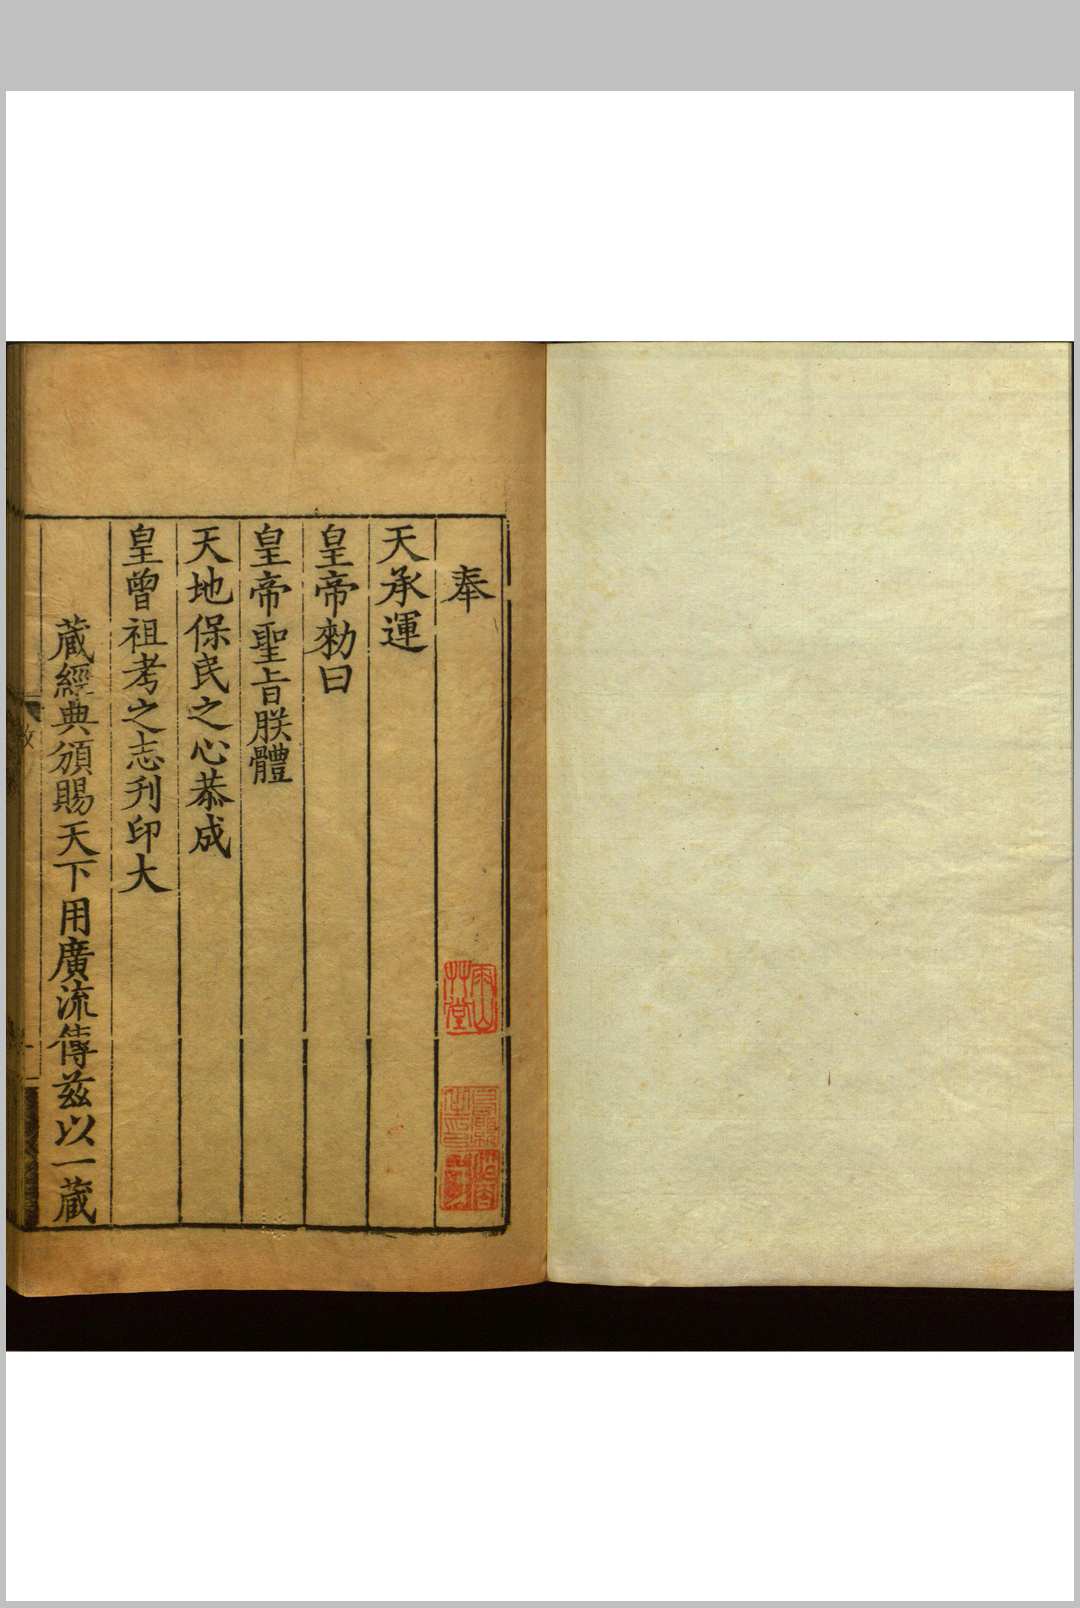 奉
天承運
皇帝勑曰
皇帝聖旨朕體
天地保民之心恭成
皇曾祖考之志刋印大
藏經典頒賜天下用廣流傳茲以一藏
雨山
艸堂